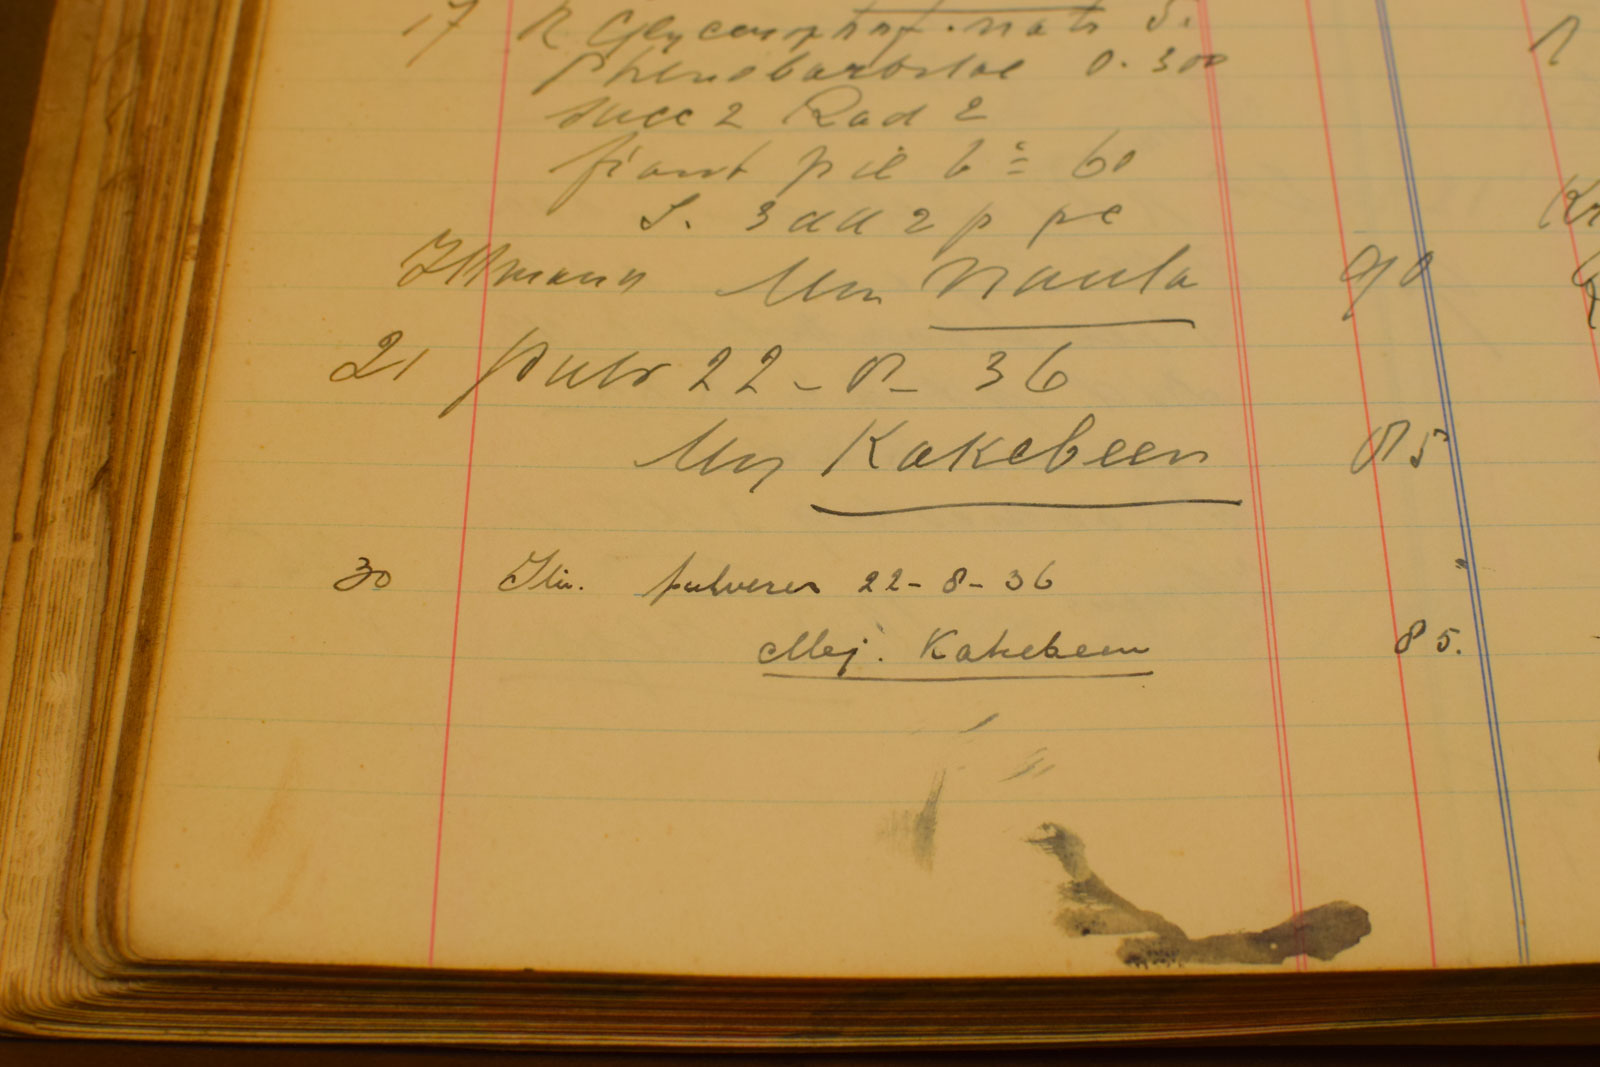 17 R Glycerophosf. natr 5.
Phenobarbital 0.300
succ 2 Rad 2
fiant pil No 60
S. 3 dd 2 p pc
Mej Nauta 90
21 pulv 22-8-36
Mej Kakebeen 85
30 Itm. pulveres 22-8-36
Mej. Kakebeen 85.